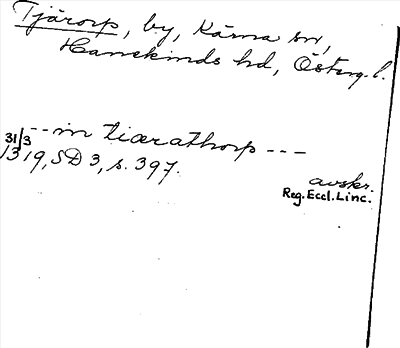 Tjärorp, by, Kärna sn,
Hanekinds hd, Österg.l.
-- in tiærathorp ---
31/3
1319, SD 3, s. 397.
avskr.
Reg. Eccl. Linc.